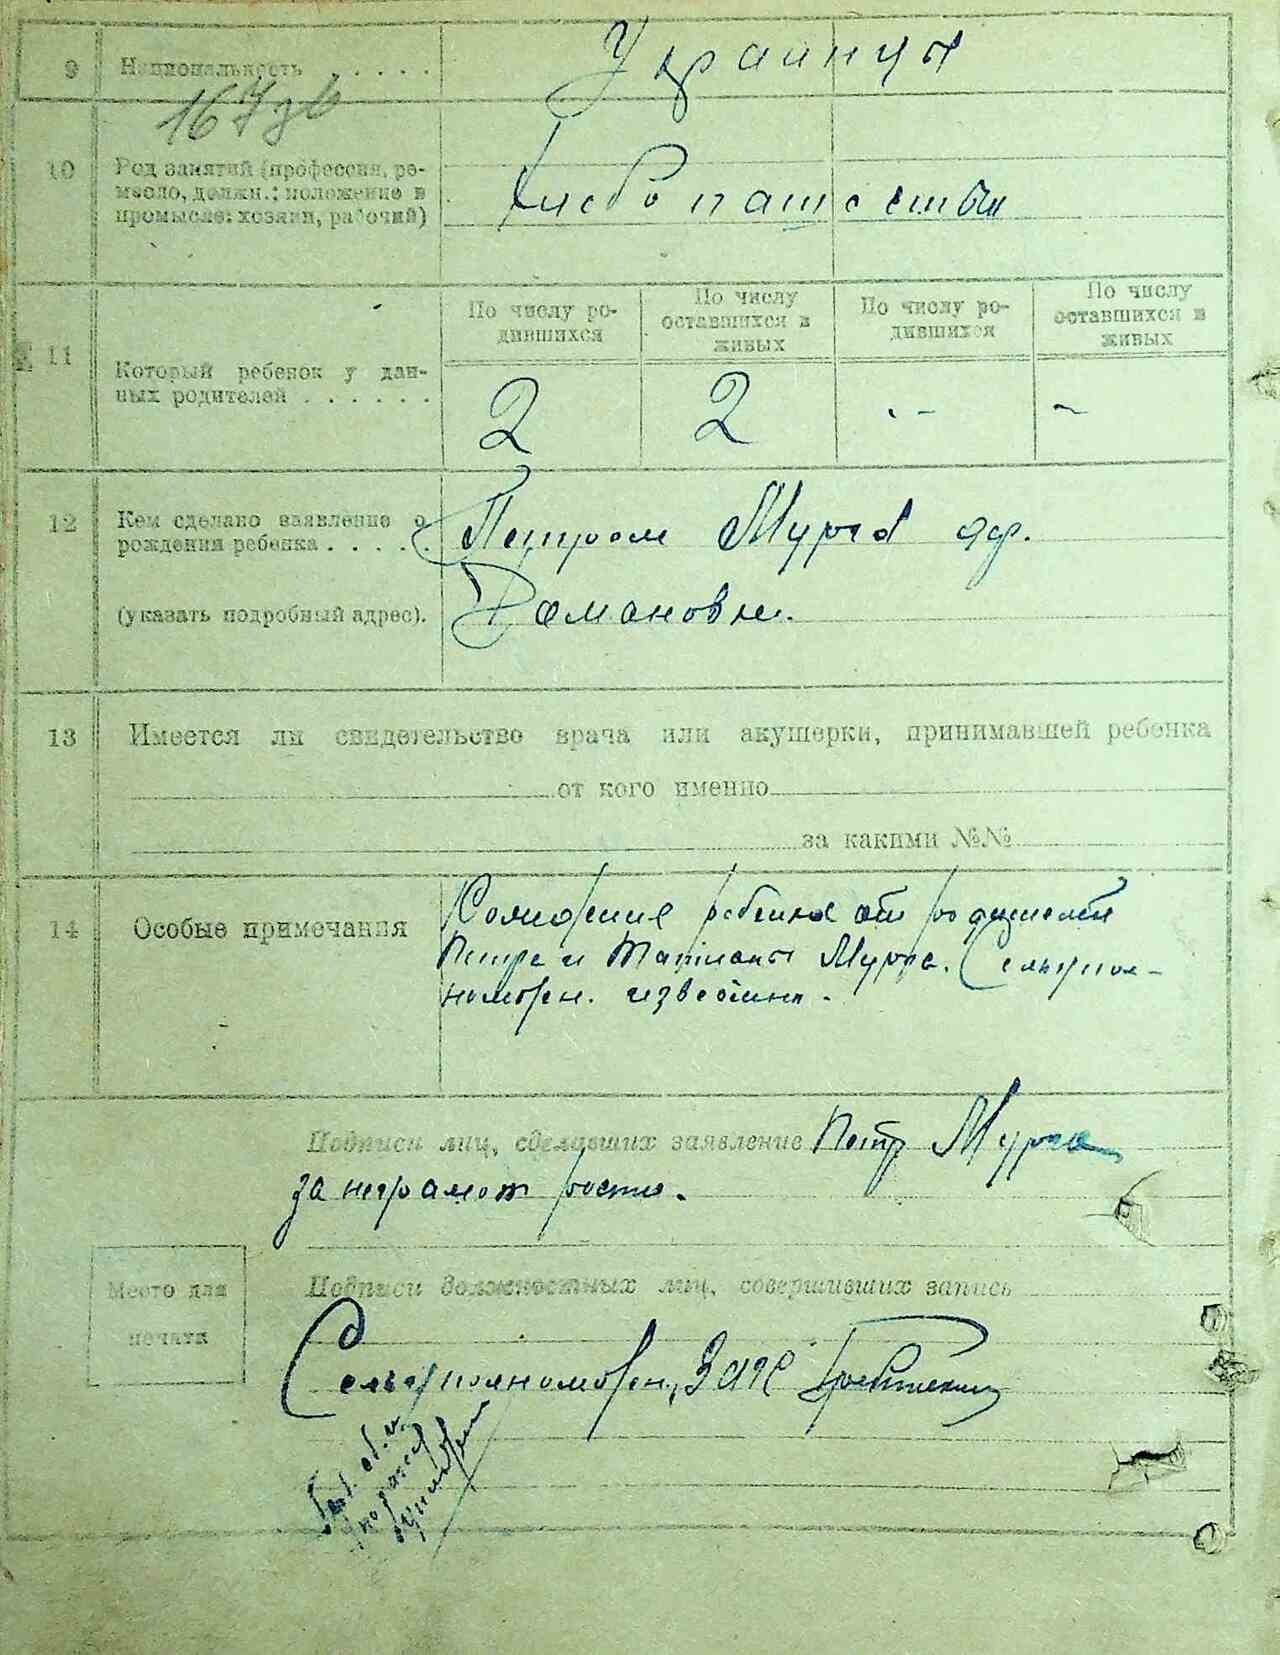 9 Национальность . . . . . Украинцы
167 зв
10 Род занятий (профессия, ре-
месло, должн.: положение в
промысле: хозяин, рабочий)
Хлебопашество
11 Который ребенок у дан-
ных родителей . . . . . .
По числу ро-
дившихся
По числу
оставшихся в
живых
По числу ро-
дившихся
По числу
оставшихся в
живых
2 2 - -
12 Кем сделано заявление о
рождения ребенка . . . . .
(указать подробный адрес).
Петром Мурга
Романовке.
13 Имеется ли свидетельство врача или акушерки, принимавшей ребенка
от кого именно
за какими №№
14 Особые примечания
рождения ребенка от родителей
Петра и Татианы Мурга. Сельупол-
номочен. известно.
Подписи лиц, сделавших заявление Петр Мурга
за неграмотностью.
Подписи должностных лиц, совершивших запись
Место для
печати
Сельуполномочен. ЗАГС